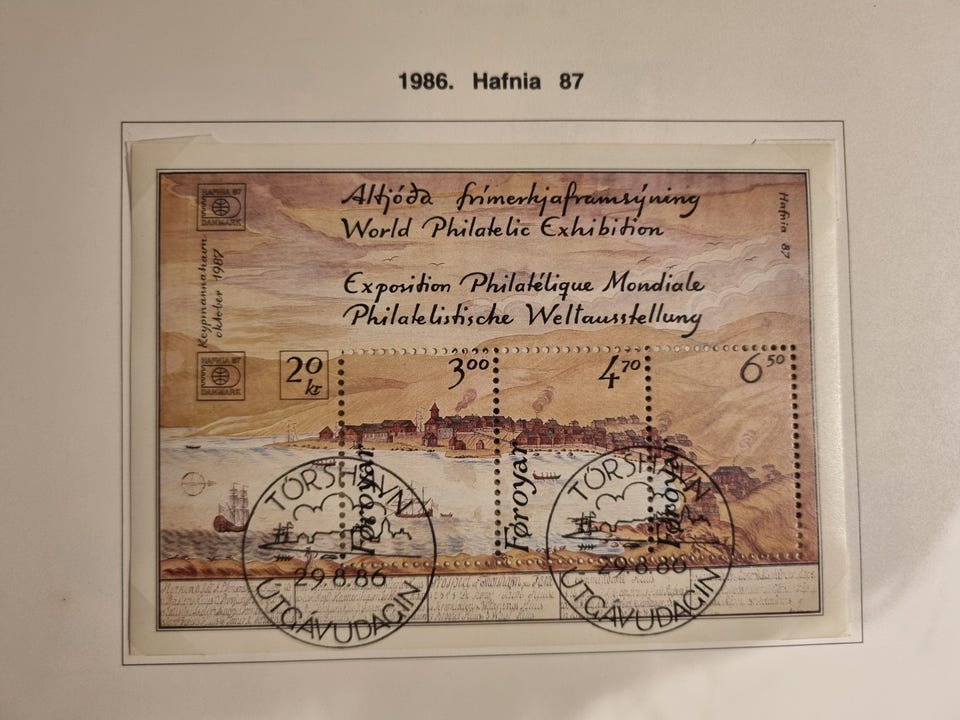 1986. Hafnia 87
HAFNIA 87
DANMARK
Keypmannahavn
oktober 1987
Altjóða frímerkjaframsýning
World Philatelic Exhibition
Exposition Philatélique Mondiale
Philatelistische Weltausstellung
Hafnia 87
HAFNIA 87
DANMARK
20
kr
3⁰⁰
4⁷⁰
6⁵⁰
Føroyar
Føroyar
Føroyar
TÓRSHAVN
29.8.86
ÚTGÁVUDAGIN
TÓRSHAVN
29.8.86
ÚTGÁVUDAGIN